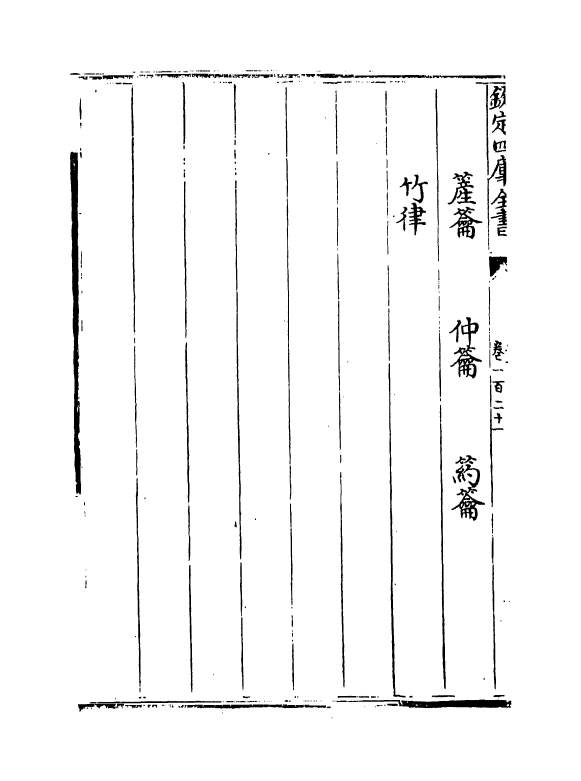 欽定四庫全書
卷一百二十一
簅籥 仲籥 箹籥
竹律